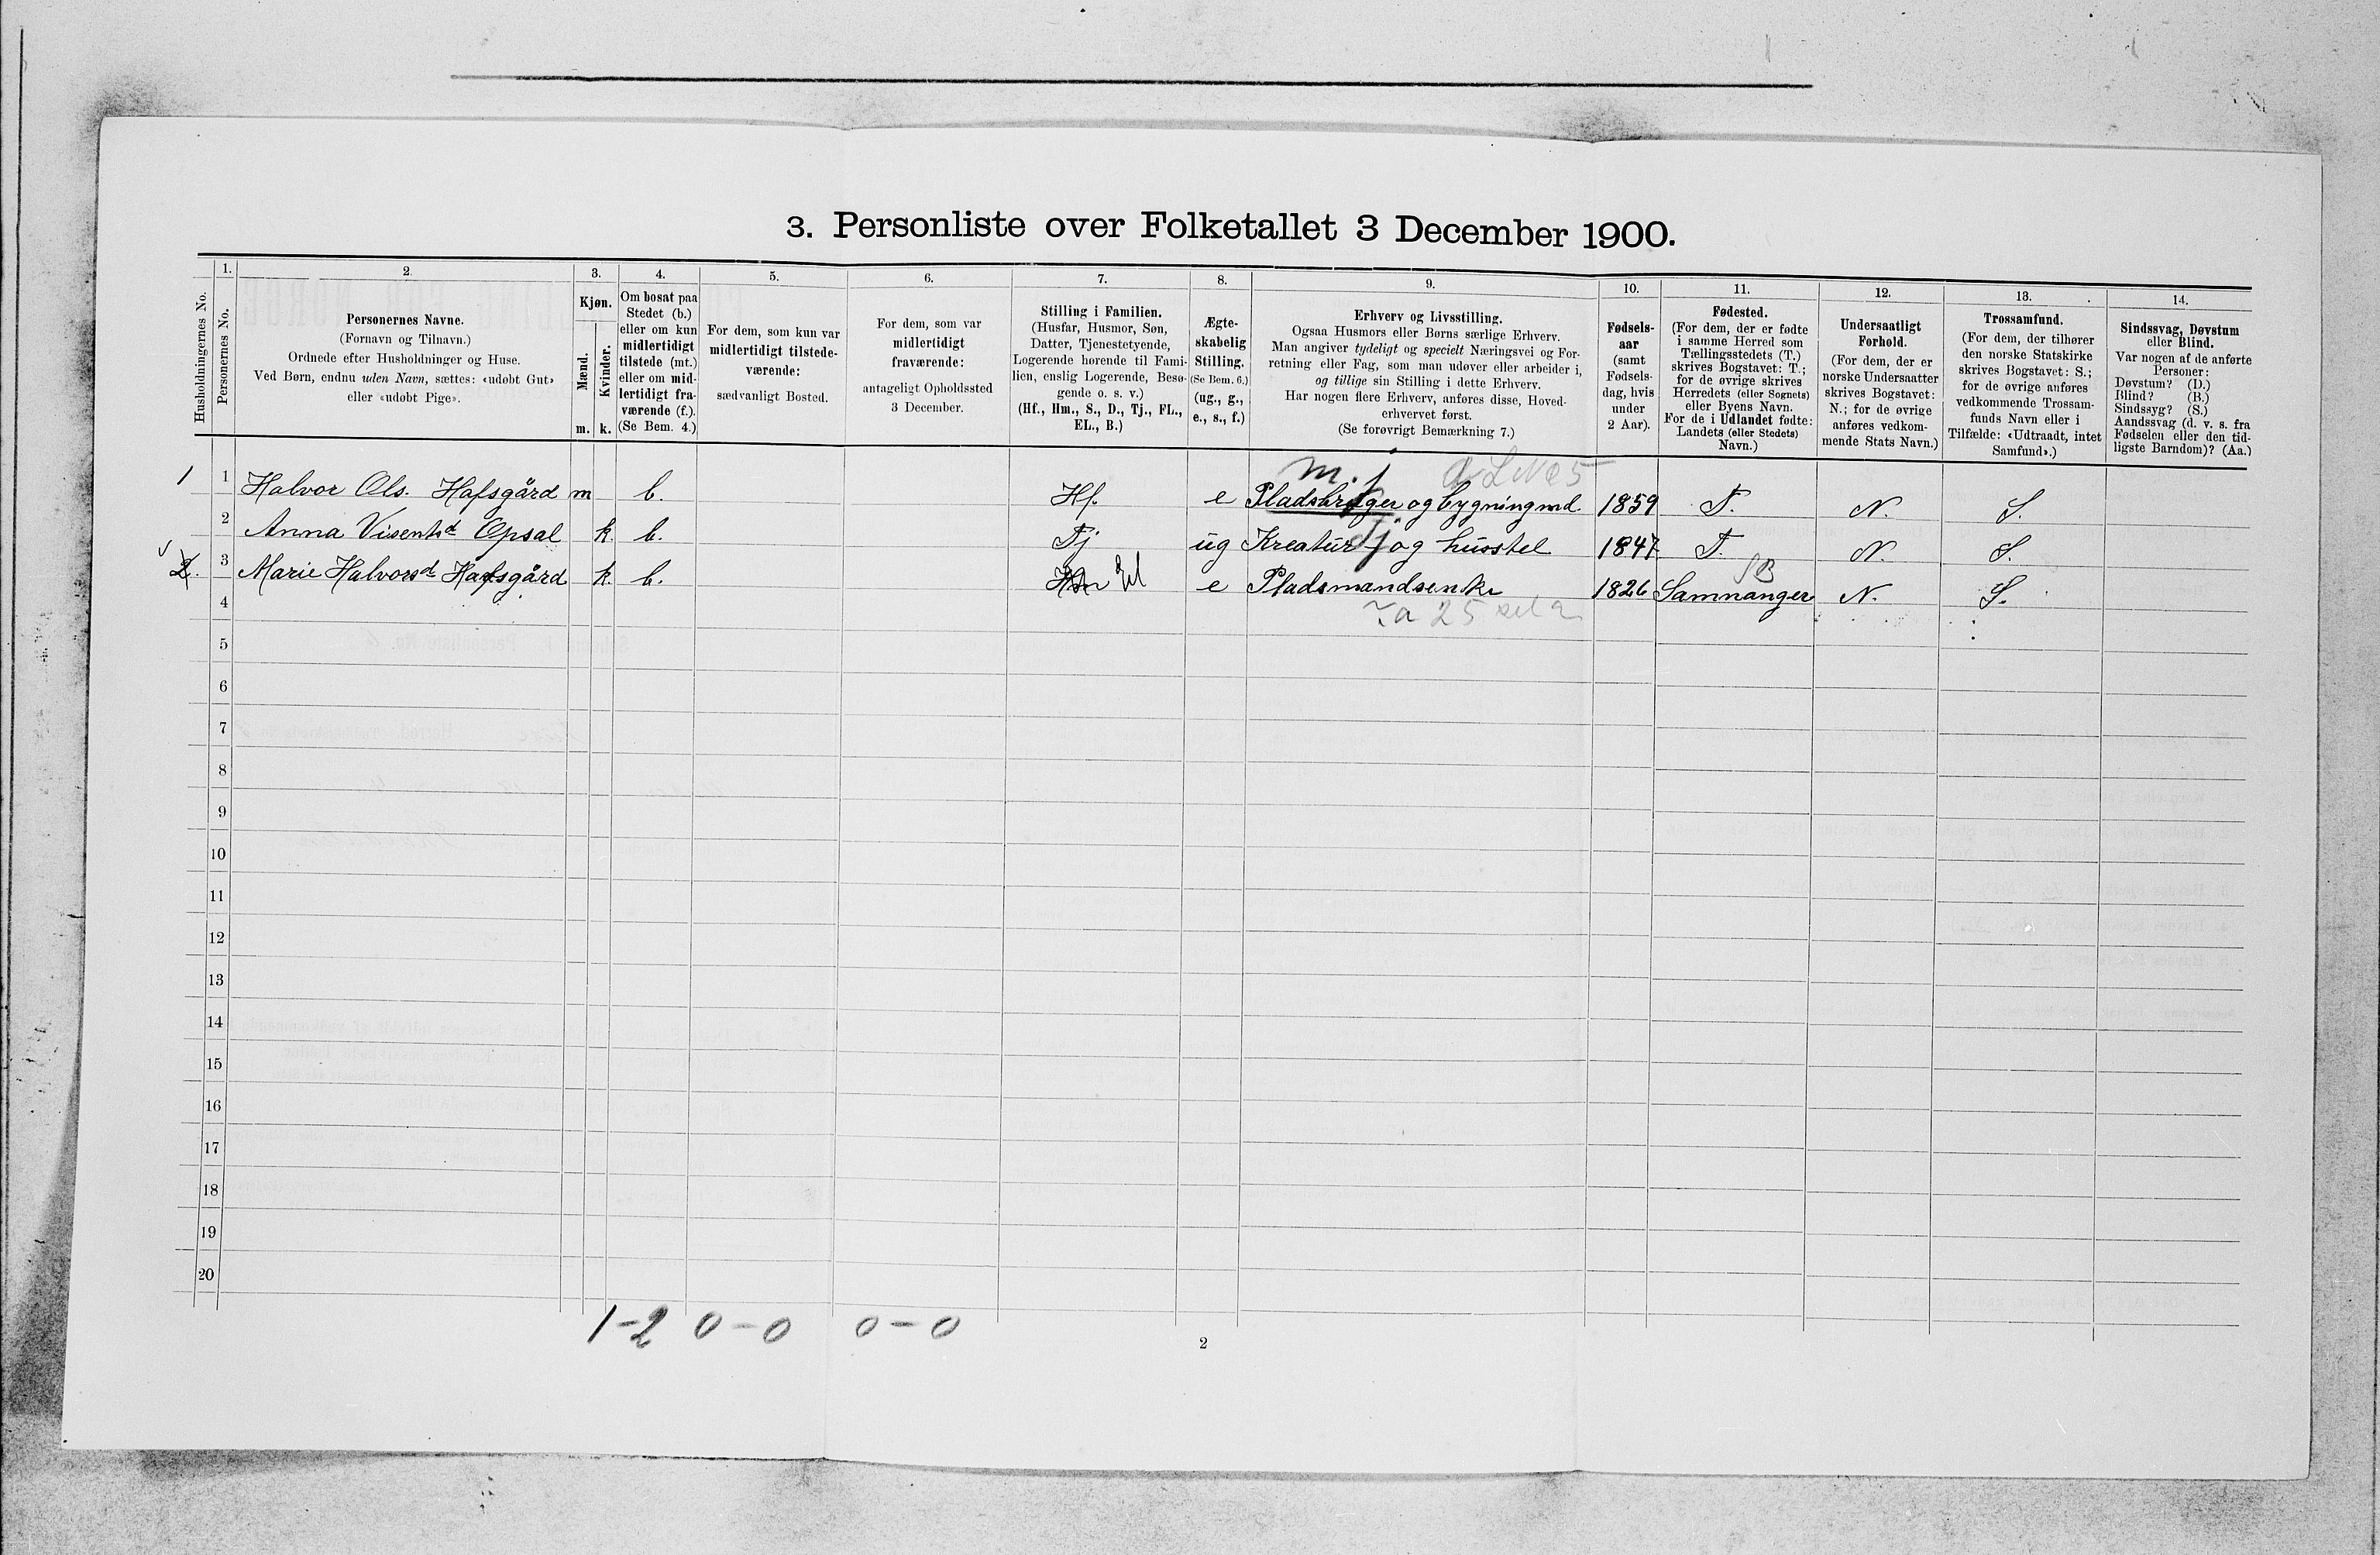 3. Personliste over Folketallet 3 December 1900.
Husholdningernes No.
1.
Personernes No.
2
Personernes Navne.
(Fornavn og Tilnavn.)
Ordnede efter Husholdninger og Huse.
Ved Børn, endnu uden Navn, sættes: «udøbt Gut»
eller «udøbt Pige».
3.
Kjøn.
Mænd.
Kvinder.
m. k.
4.
Om bosat paa
Stedet (b.)
eller om kun
midlertidigt
tilstede (mt.)
eller om mid-
lertidigt fra-
værende (f.).
(Se Bem. 4.)
5.
For dem, som kun var
midlertidigt tilstede-
værende:
sædvanligt Bosted.
6.
For dem, som var
midlertidigt
fraværende:
antageligt Opholdssted
3 December.
7.
Stilling i Familien.
(Husfar, Husmor, Søn,
Datter, Tjenestetyende,
Logerende hørende til Fami-
lien, enslig Logerende, Besø-
gende o. s. v.)
(Hf., Hm., S., D., Tj., FL.,
EL., B.)
8.
Ægte-
skabelig
Stilling.
(Se Bem. 6.)
(ug., g.,
e., s., f.)
9.
Erhverv og Livsstilling.
Ogsaa Husmors eller Børns særlige Erhverv.
Man angiver tydeligt og specielt Næringsvei og For-
retning eller Fag, som man udøver eller arbeider i,
og tillige sin Stilling i dette Erhverv.
Har nogen flere Erhverv, anføres disse, Hoved-
erhvervet først.
(Se forøvrigt Bemærkning 7.)
10.
Fødsels-
aar
(samt
Fødsels-
dag, hvis
under
2 Aar).
11.
Fødested.
(For dem, der er fødte
i samme Herred som
Tællingsstedets (T.)
skrives Bogstavet: T.;
for de øvrige skrives
Herredets (eller Sognets)
eller Byens Navn.
For de i Udlandet fødte:
Landets (eller Stedets)
Navn.)
12.
Undersaatligt
Forhold.
(For dem, der er
norske Undersaatter
skrives Bogstavet:
N.; for de øvrige
anføres vedkom-
mende Stats Navn.)
13.
Trossamfund.
(For dem, der tilhører
den norske Statskirke
skrives Bogstavet: S.;
for de øvrige anføres
vedkommende Trossam-
funds Navn eller i
Tilfælde: «Udtraadt, intet
Samfund».)
14.
Sindssvag, Døvstum
eller Blind.
Var nogen af de anførte
Personer:
Døvstum? (D.)
Blind? (B.)
Sindssyg? (S.)
Aandssvag (d. v. s. fra
Fødselen eller den tid-
ligste Barndom)? (Aa.)
m. j
1 1 Halvor Ols. Hafsgård m b. Hf. e Pladsbruger og bygningmd. 1859 T. N. S.
2 Anna Visentsd Opsal k. b. Tj ug Kreatur og husstel 1847 T. N. S.
2. 3 Marie Halvorsd Hafsgård k. b. El e Pladsmandsenke 1826 Samnanger N. S.
4
5
6
7
8
9
10
11
12
13
14
15
16
17
18
19
20
1-2 0-0 0-0
2